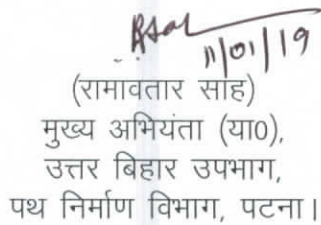 11/01/19
(रामावतार साह)
मुख्य अभियंता (या०),
उत्तर बिहार उपभाग,
पथ निर्माण विभाग, पटना।